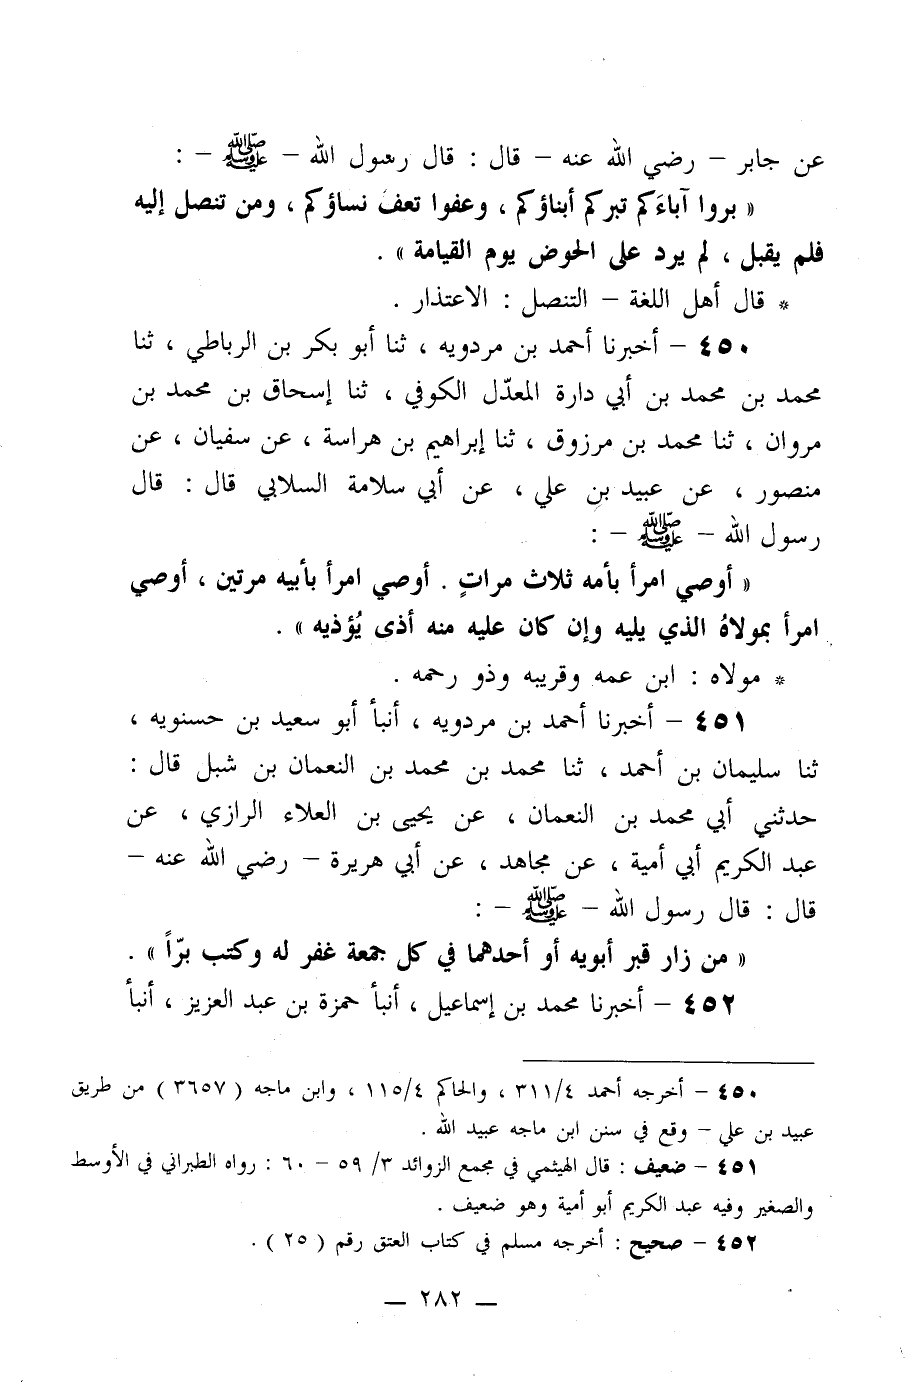 عن جابر – رضي الله عنه – قال : قال رسول الله – ﷺ – :
« بروا آباءَكم تبركم أبناؤكم ، وعفوا تعفَ نساؤكم ، ومن تنصل إليه
فلم يقبل ، لم يرد على الحوض يوم القيامة » .
* قال أهل اللغة – التنصل : الاعتذار .
٤٥٠ – أخبرنا أحمد بن مردويه ، ثنا أبو بكر بن الرباطي ، ثنا
محمد بن محمد بن أبي دارة المعدّل الكوفي ، ثنا إسحاق بن محمد بن
مروان ، ثنا محمد بن مرزوق ، ثنا إبراهيم بن هراسة ، عن سفيان ، عن
منصور ، عن عبيد بن علي ، عن أبي سلامة السلابي قال : قال
رسول الله – ﷺ – :
« أوصي امرأ بأمه ثلاث مراتٍ . أوصي امرأ بأبيه مرتين ، أوصي
امرأ بمولاهُ الذي يليه وإن كان عليه منه أذى يُؤذيه » .
* مولاه : ابن عمه وقريبه وذو رحمه .
٤٥١ – أخبرنا أحمد بن مردويه ، أنبأ أبو سعيد بن حسنويه ،
ثنا سليمان بن أحمد ، ثنا محمد بن محمد بن النعمان بن شبل قال :
حدثني أبي محمد بن النعمان ، عن يحيى بن العلاء الرازي ، عن
عبد الكريم أبي أمية ، عن مجاهد ، عن أبي هريرة – رضي الله عنه –
قال : قال رسول الله – ﷺ – :
« من زار قبر أبويه أو أحدهما في كل جمعة غفر له وكتب برّاً » .
٤٥٢ – أخبرنا محمد بن إسماعيل ، أنبأ حمزة بن عبد العزيز ، أنبأ
٤٥٠ – أخرجه أحمد ٣١١/٤ ، والحاكم ١١٥/٤ ، وابن ماجه ( ٣٦٥٧ ) من طريق
عبيد بن علي – وقع في سنن ابن ماجه عبيد الله .
٤٥١ – ضعيف : قال الهيثمي في مجمع الزوائد ٣/ ٥٩ – ٦٠ : رواه الطبراني في الأوسط
والصغير وفيه عبد الكريم أبو أمية وهو ضعيف .
٤٥٢ – صحيح : أخرجه مسلم في كتاب العتق رقم ( ٢٥ ) .
– ٢٨٢ –